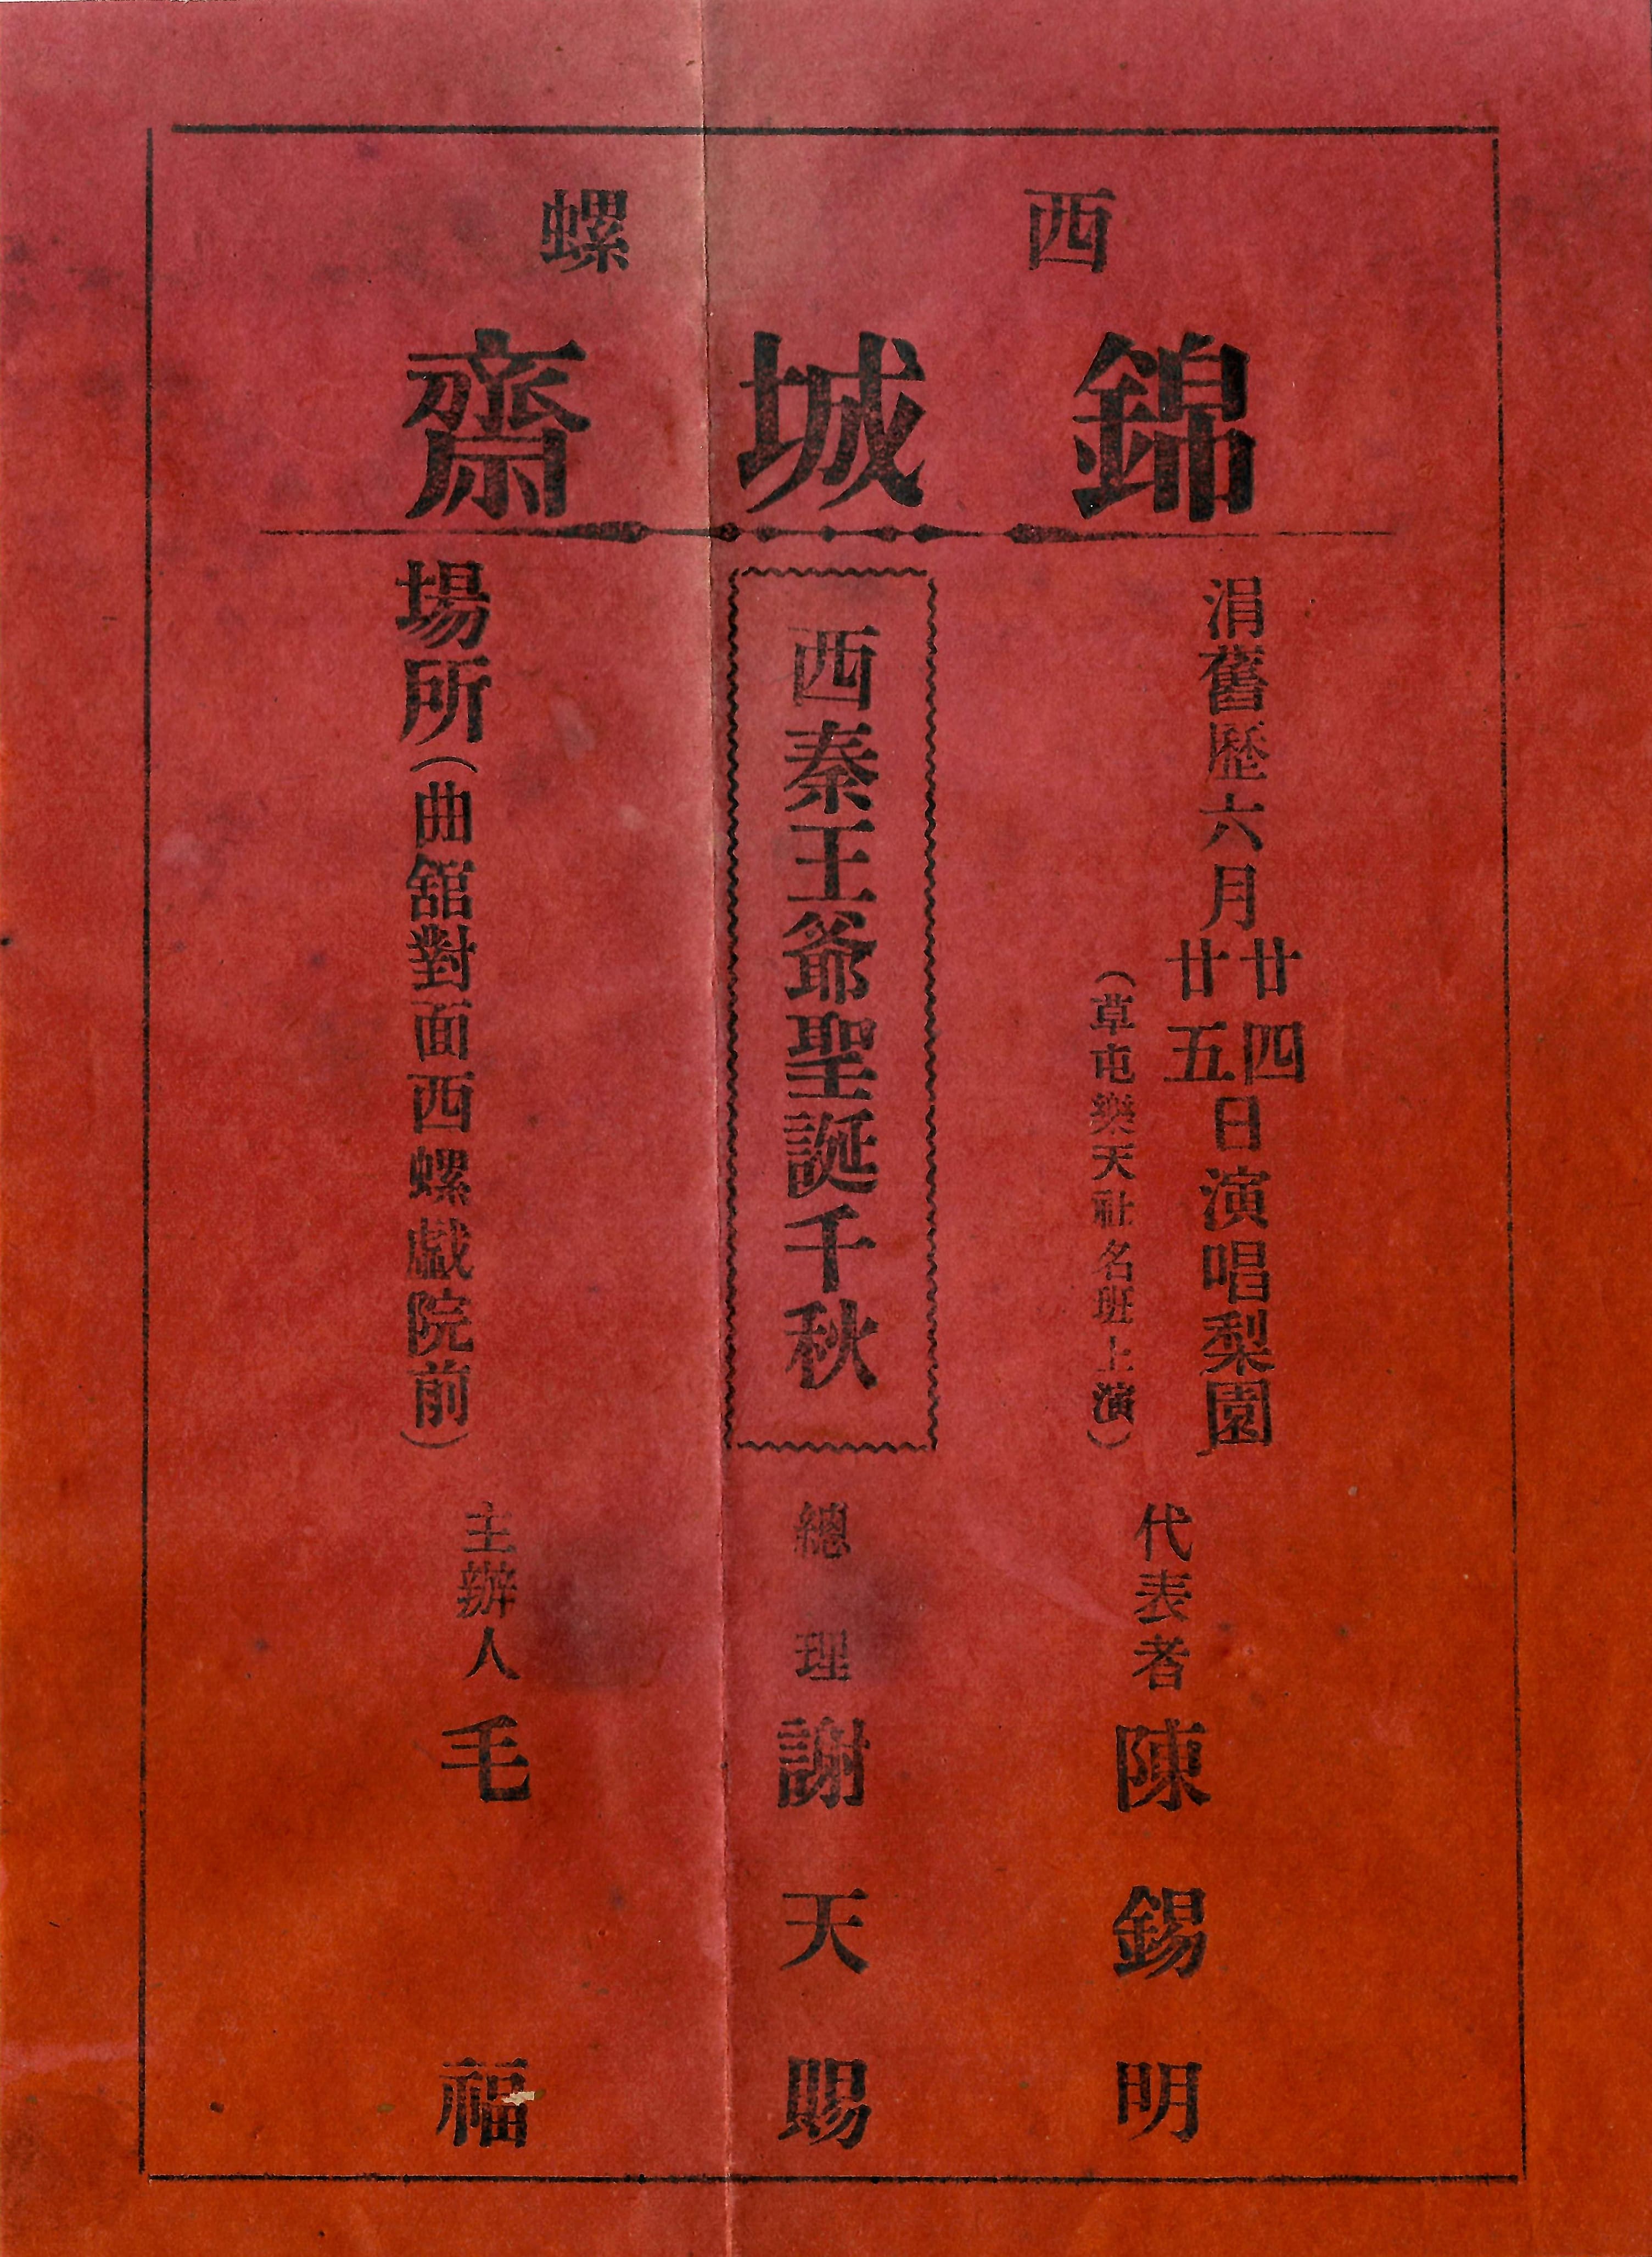 西螺
錦城齋
涓舊歷六月廿四廿五日演唱梨園
(草屯樂天社名班上演)
西秦王爺聖誕千秋
場所(曲舘對面西螺戲院前)
代表者陳錫明
總理謝天賜
主辦人毛福